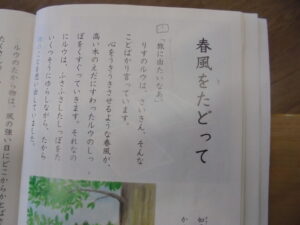 春風をたどって
「旅に出たいなあ。」
りすのルウは、さいきん、そんな
ことばかり言っています。
心をうきうきさせるような春風が、
高い木のえだにすわったルウのしっ
ぽをくすぐっていきます。それなの
にルウは、ふさふさしたしっぽをた
いくつそうにゆらしながら、たから
ルウのたから物は、風の強い日にどこからかとばさ